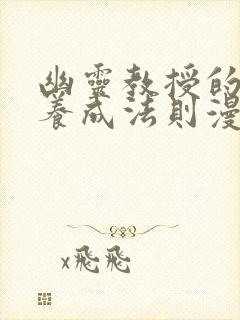 幽靈教授的
養成法則漫
x飛飛